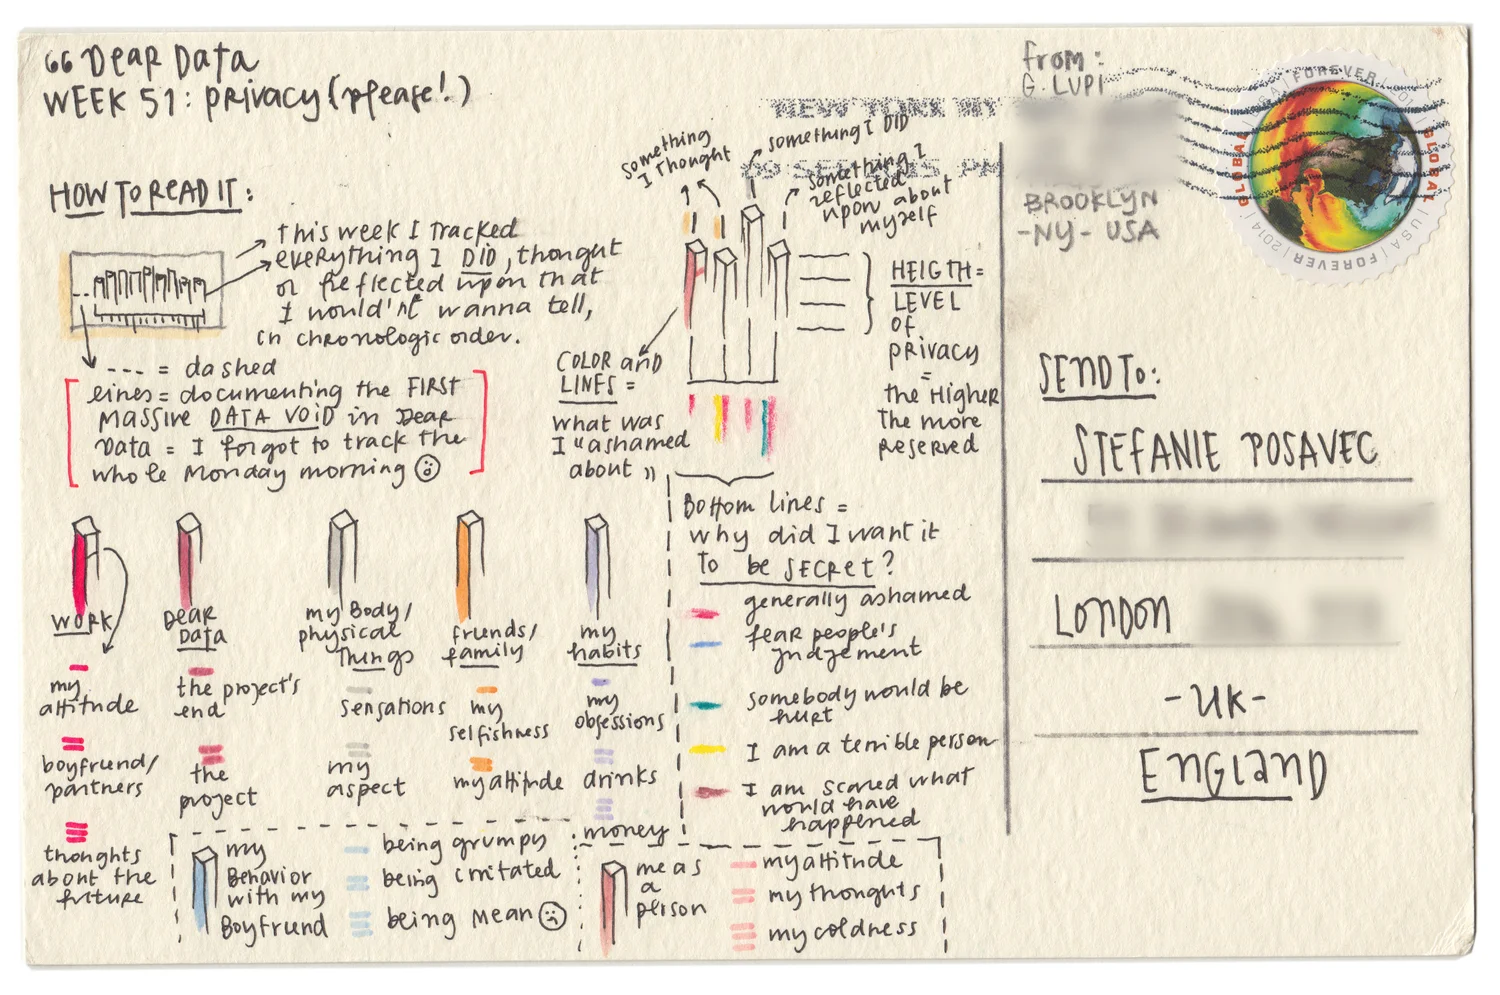 DEAR DATA
WEEK 51: PRIVACY (please!)
HOW TO READ IT:
this week I tracked
everything I DID, thought
or Reflected upon that
I would'nt wanna tell,
in chronologic order.
--- = dashed
lines = documenting the FIRST
MASSIVE DATA VOID in Dear
Data = I forgot to track the
whole Monday morning ☹
something
I Thought
something I DID
something I
reflected
upon about
myself
COLOR and
LINES =
what was
I "ashamed
about"
HEIGTH =
LEVEL
of
privacy
=
the Higher
The more
Reserved
Bottom lines =
why did I want it
To be SECRET?
generally ashamed
fear people's
judgement
somebody would be
hurt
I am a terrible person
I am scared what
would have
happened
WORK
my
attitude
boyfriend/
partners
thoughts
about the
future
DEAR
DATA
the project's
end
the
project
my Body/
physical
Things
sensations
my
aspect
friends/
family
my
selfishness
my attitude
my
habits
my
obsessions
drinks
money
my
Behavior
with my
Boyfriend
being grumpy
being irritated
being mean ☹
me as
a
person
my attitude
my thoughts
my coldness
NEW YORK NY
09 SEP 2015 PM
from:
G. LUPI
BROOKLYN
-NY- USA
GLOBAL
FOREVER
GLOBAL
USA | FOREVER | 2014
SEND TO:
STEFANIE POSAVEC
LONDON
-UK-
ENGLAND